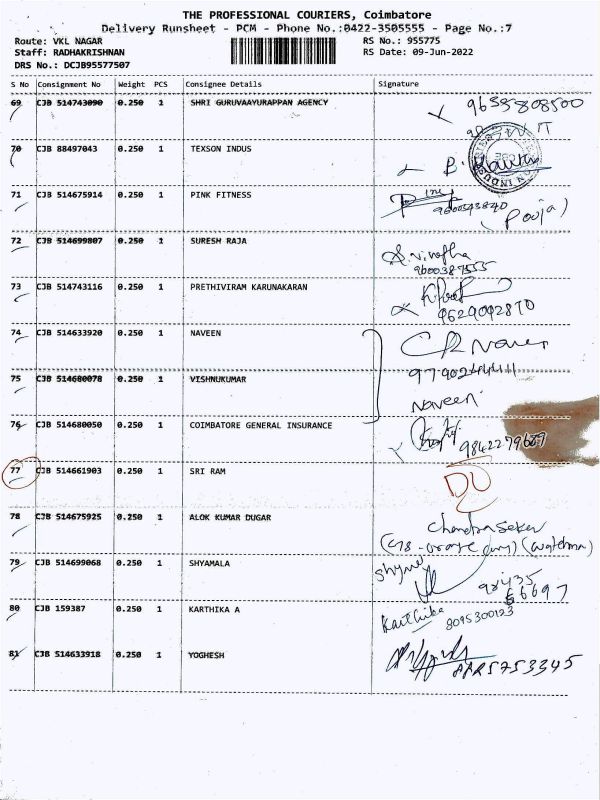 THE PROFESSIONAL COURIERS, Coimbatore
Delivery Runsheet - PCM - Phone No.:0422-3505555 - Page No.:7
Route: VKL NAGAR
RS No.: 955775
Staff: RADHAKRISHNAN
RS Date: 09-Jun-2022
DRS No.: DCJB95577507
S No Consignment No Weight PCS Consignee Details Signature
69 CJB 514743090 0.250 1 SHRI GURUVAAYURAPPAN AGENCY
70 CJB 88497043 0.250 1 TEXSON INDUS
71 CJB 514675914 0.250 1 PINK FITNESS
(Pooja)
72 CJB 514699807 0.250 1 SURESH RAJA
9600387555
73 CJB 514743116 0.250 1 PRETHIVIRAM KARUNAKARAN
9629092870
74 CJB 514633920 0.250 1 NAVEEN
75 CJB 514680078 0.250 1 VISHNUKUMAR
Naveen
76 CJB 514680050 0.250 1 COIMBATORE GENERAL INSURANCE
77 CJB 514661903 0.250 1 SRI RAM
78 CJB 514675925 0.250 1 ALOK KUMAR DUGAR
Chandra Seker
79 CJB 514699068 0.250 1 SHYAMALA
80 CJB 159387 0.250 1 KARTHIKA A
Karthika 8095300123
81 CJB 514633918 0.250 1 YOGHESH